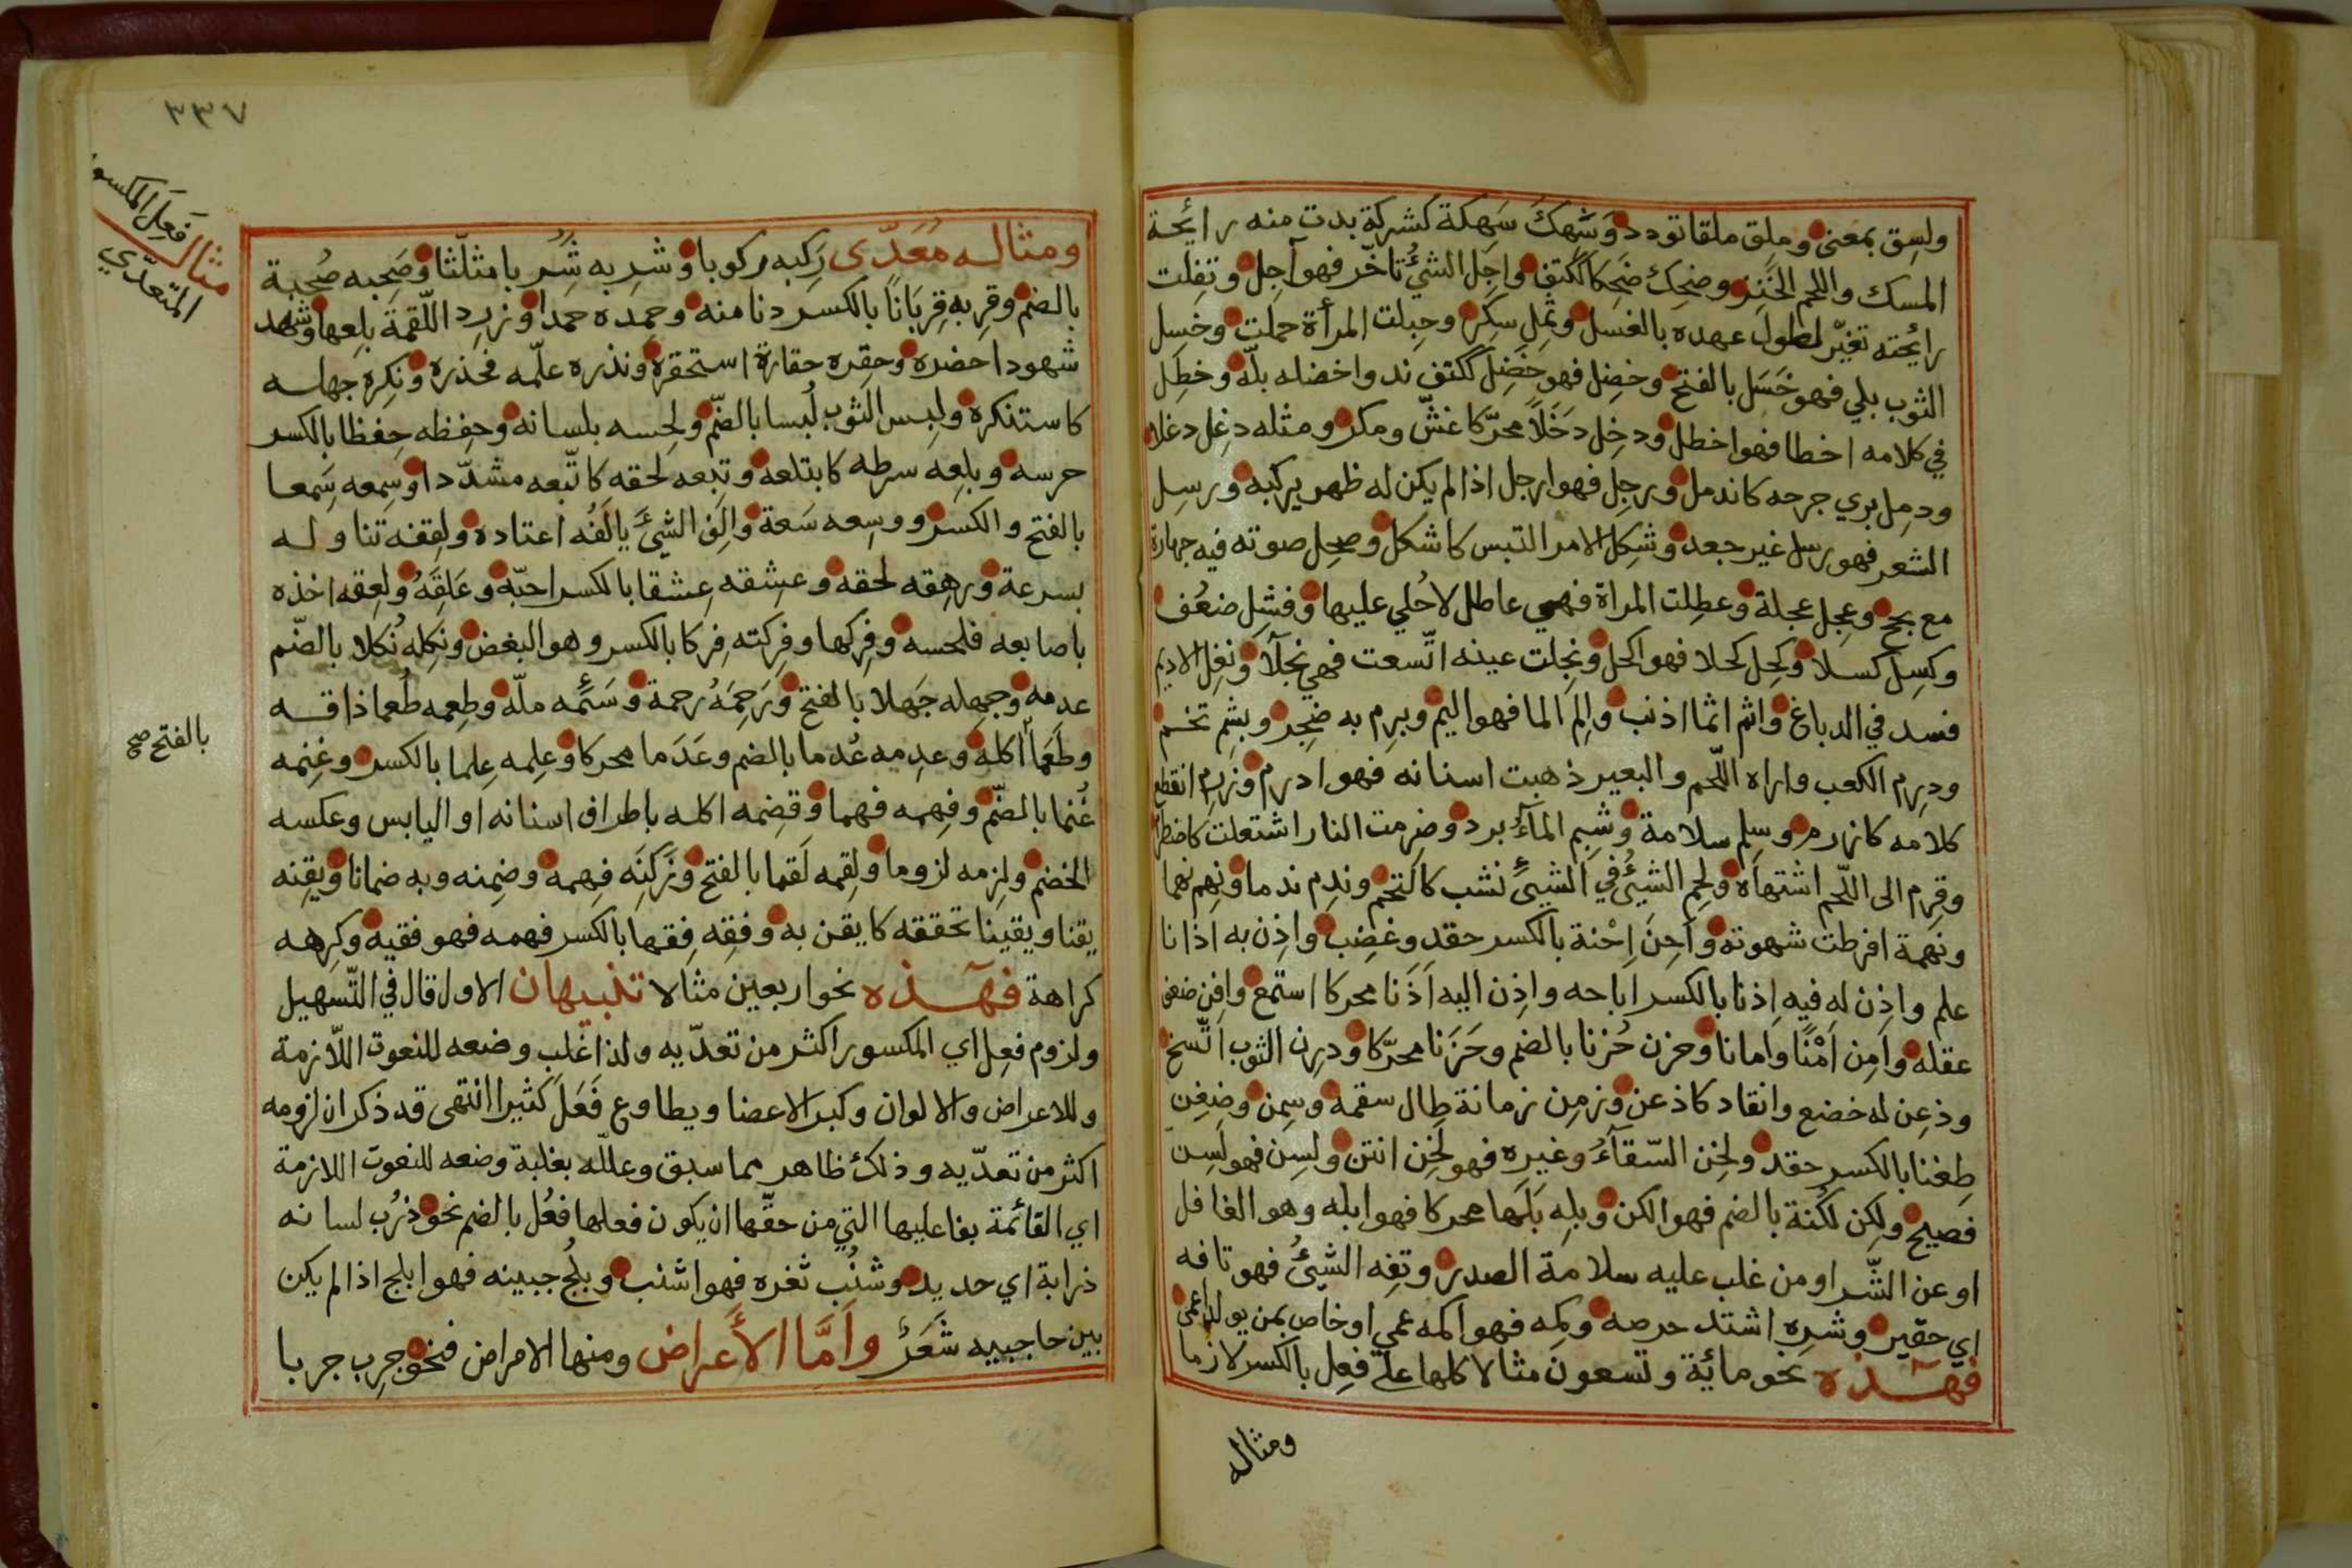 ولسِق بمعنى وملِق ملقا تودد وَسَهِكَ سَهِكة كشركة بدت منه رايُحة
المسك واللحم الخَنِز وضحِك ضَحِكا ككتف واجَل الشئُ تأخّر فهو آجِل وتفِلت
رائحته تغيّر لطول عهده بالغسل وثمِل سكِر وحبِلت المرأة حملت وخسِل
الثوب بلي فهو خَسَل بالفتح وخضِل فهو خَضِل ككتف ند واخضله بلّه وخطِل
في كلامه اخطا فهو اخطل ودخِل دَخَلاً محرّكا غشّ ومكر ومثله دغِل دغلا
ودمِل بري جرحه كاندمل ورجِل فهو ارجل اذا لم يكن له ظهر يركبه ورسِل
الشعر فهو رسل غير جعد وشكِل الامر التبس كاشكل وصحِل صوته فيه جهارة
مع بحح وعجِل عجلة وعطِلت المراة فهي عاطل لا حُلي عليها وفشِل ضعُف
وكسِل كسلا وكحِل كحلا فهو اكحل ونجِلت عينه اتّسعت فهي نجلآ ونغِل الاديم
فسد في الدباغ واثم اثما اذنب والِمَ الما فهو اليم وبرِم به ضجِر وبشِم تخم
ودرِم الكعب واراه اللّحم والبعير ذهبت اسنانه فهو ادرم وزرِم انقطع
كلامه كازرم وسلِم سلامة وشبِم المآءُ برد وضرمت النار اشتعلت كاضطرم
وقرِم الى اللّحم اشتهاه ولحِم الشئُ في الشئِ نشب كالتحم وندِم ندما ونهِم نهما
ونهمة افرطت شهوته وأحِنَ اِحْنة بالكسر حقد وغضِب واذِن به اذانا
علم واذِن له فيه اِذنا بالكسر اباحه واذِن اليه اَذَنا محركا استمع وافِن ضعف
عقله وأمِن اَمْنًا وامانا وحزن حُزنا بالضم وحَزَنا محرّكا ودرِن الثوب اتّسخ
وذعِن له خضع وانقاد كاذعن وزمِن زمانة طال سقمه وسِمن وضغِن
ضِغنا بالكسر حقد ولخِن السّقآءُ وغيره فهو لَخِن انتن ولسِن فهو لَسِن
فصيح ولكِن لكُنة بالضم فهو الكن وبلِه بَلَها محركا فهو ابله وهو الغافل
او عن الشّر او من غلب عليه سلامة الصدر وتفِه الشئُ فهو تافه
اي حقير وشرِه اشتد حرصه وكمِه فهو اكمه عمي او خاص بمن يولد اعمى
فهٓذه نحو مائة وتسعون مثالا كلها على فعِل بالكسر لازما
ومثاله
٣٣٧
مثال فَعِلَ المكسور
المتعدّي
ومثاله مُعَدّى رَكِبه ركوبا وشرِبه شُرْبا مثلّثا وصَحِبه صُحبة
بالضم وقرِبه قِرِبَانًا بالكسر دنا منه وحمِده حمدا وزرِد اللّقمةَ بلِعها وشهد
شهودا حضره وحقِره حقارة استحقره ونذره علمه فحذره ونكِره جهله
كاستنكره ولبِس الثوب لُبسا بالضّم ولحِسه بلسانه وحفِظه حِفظا بالكسر
حرسه وبلِعه سرطه كابتلعه وتبِعه لحقه كاتّبعه مشدّدا وسِمعه سَِمعا
بالفتح والكسر ووسِعه سَعة والِفَ الشئَ يالَفُه اعتاده ولقِفه تناوله
بسرعة ورهِقه لحقه وعشِقه عِشقا بالكسر احبّه وعَلِقَهُ ولعِقه اخذه
باصابعه فلحسه وفرِكها وفرِكته فِركا بالكسر وهو البغض ونكِله نُكلا بالضّم
عدمه وجهِله جَهلا بالفتح وَرَحِمَهُ رحمة وسَئِمه ملّه وطعِمه طُعما ذاقه
وطَعْمًا اكله وعدِمه عُدما بالضم وعَدَما محركا وعلِمه عِلما بالكسر وغنِمه
بالفتح صح
غُنما بالضّم وفهِمه فهما وقضِمه اكله باطراف اسنانه او اليابس وعكسه
الخضم ولزِمه لزوما ولقِمه لَقما بالفتح وَزَكِنَه فِهمه وضمِنه وبه ضمانا ويقِنه
يقنا ويقينا تحققه كايقن به وفقِه فِقها بالكسر فهمه فهو فقيه وكرِهه
كراهة فهٓذه نحو اربعين مثالا تنبيهان الاول قال في التّسهيل
ولزوم فعِل اي المكسور اكثر من تعدّيه ولذا غلب وضعه للنعوت اللّازمة
وللاعراض والالوان وكبر الاعضا ويطاوع فَعَلَ كثيرا انتهى قد ذكر ان لزومه
اكثر من تعدّيه وذلك ظاهر مما سبق وعلله بغلبة وضعه للنعوت اللازمة
اي القائمة بفاعليها التي من حقّها ان يكون فعلها فعُل بالضم نحو ذرُب لسانه
ذرابة اي حديد وشنُب ثغره فهو اشنب وبلُج جبينه فهو ابلج اذا لم يكن
بين حاجبيه شَعَرٌ وَاَمَّا الأَعراض ومنها الامراض فنحو جرِب جربا